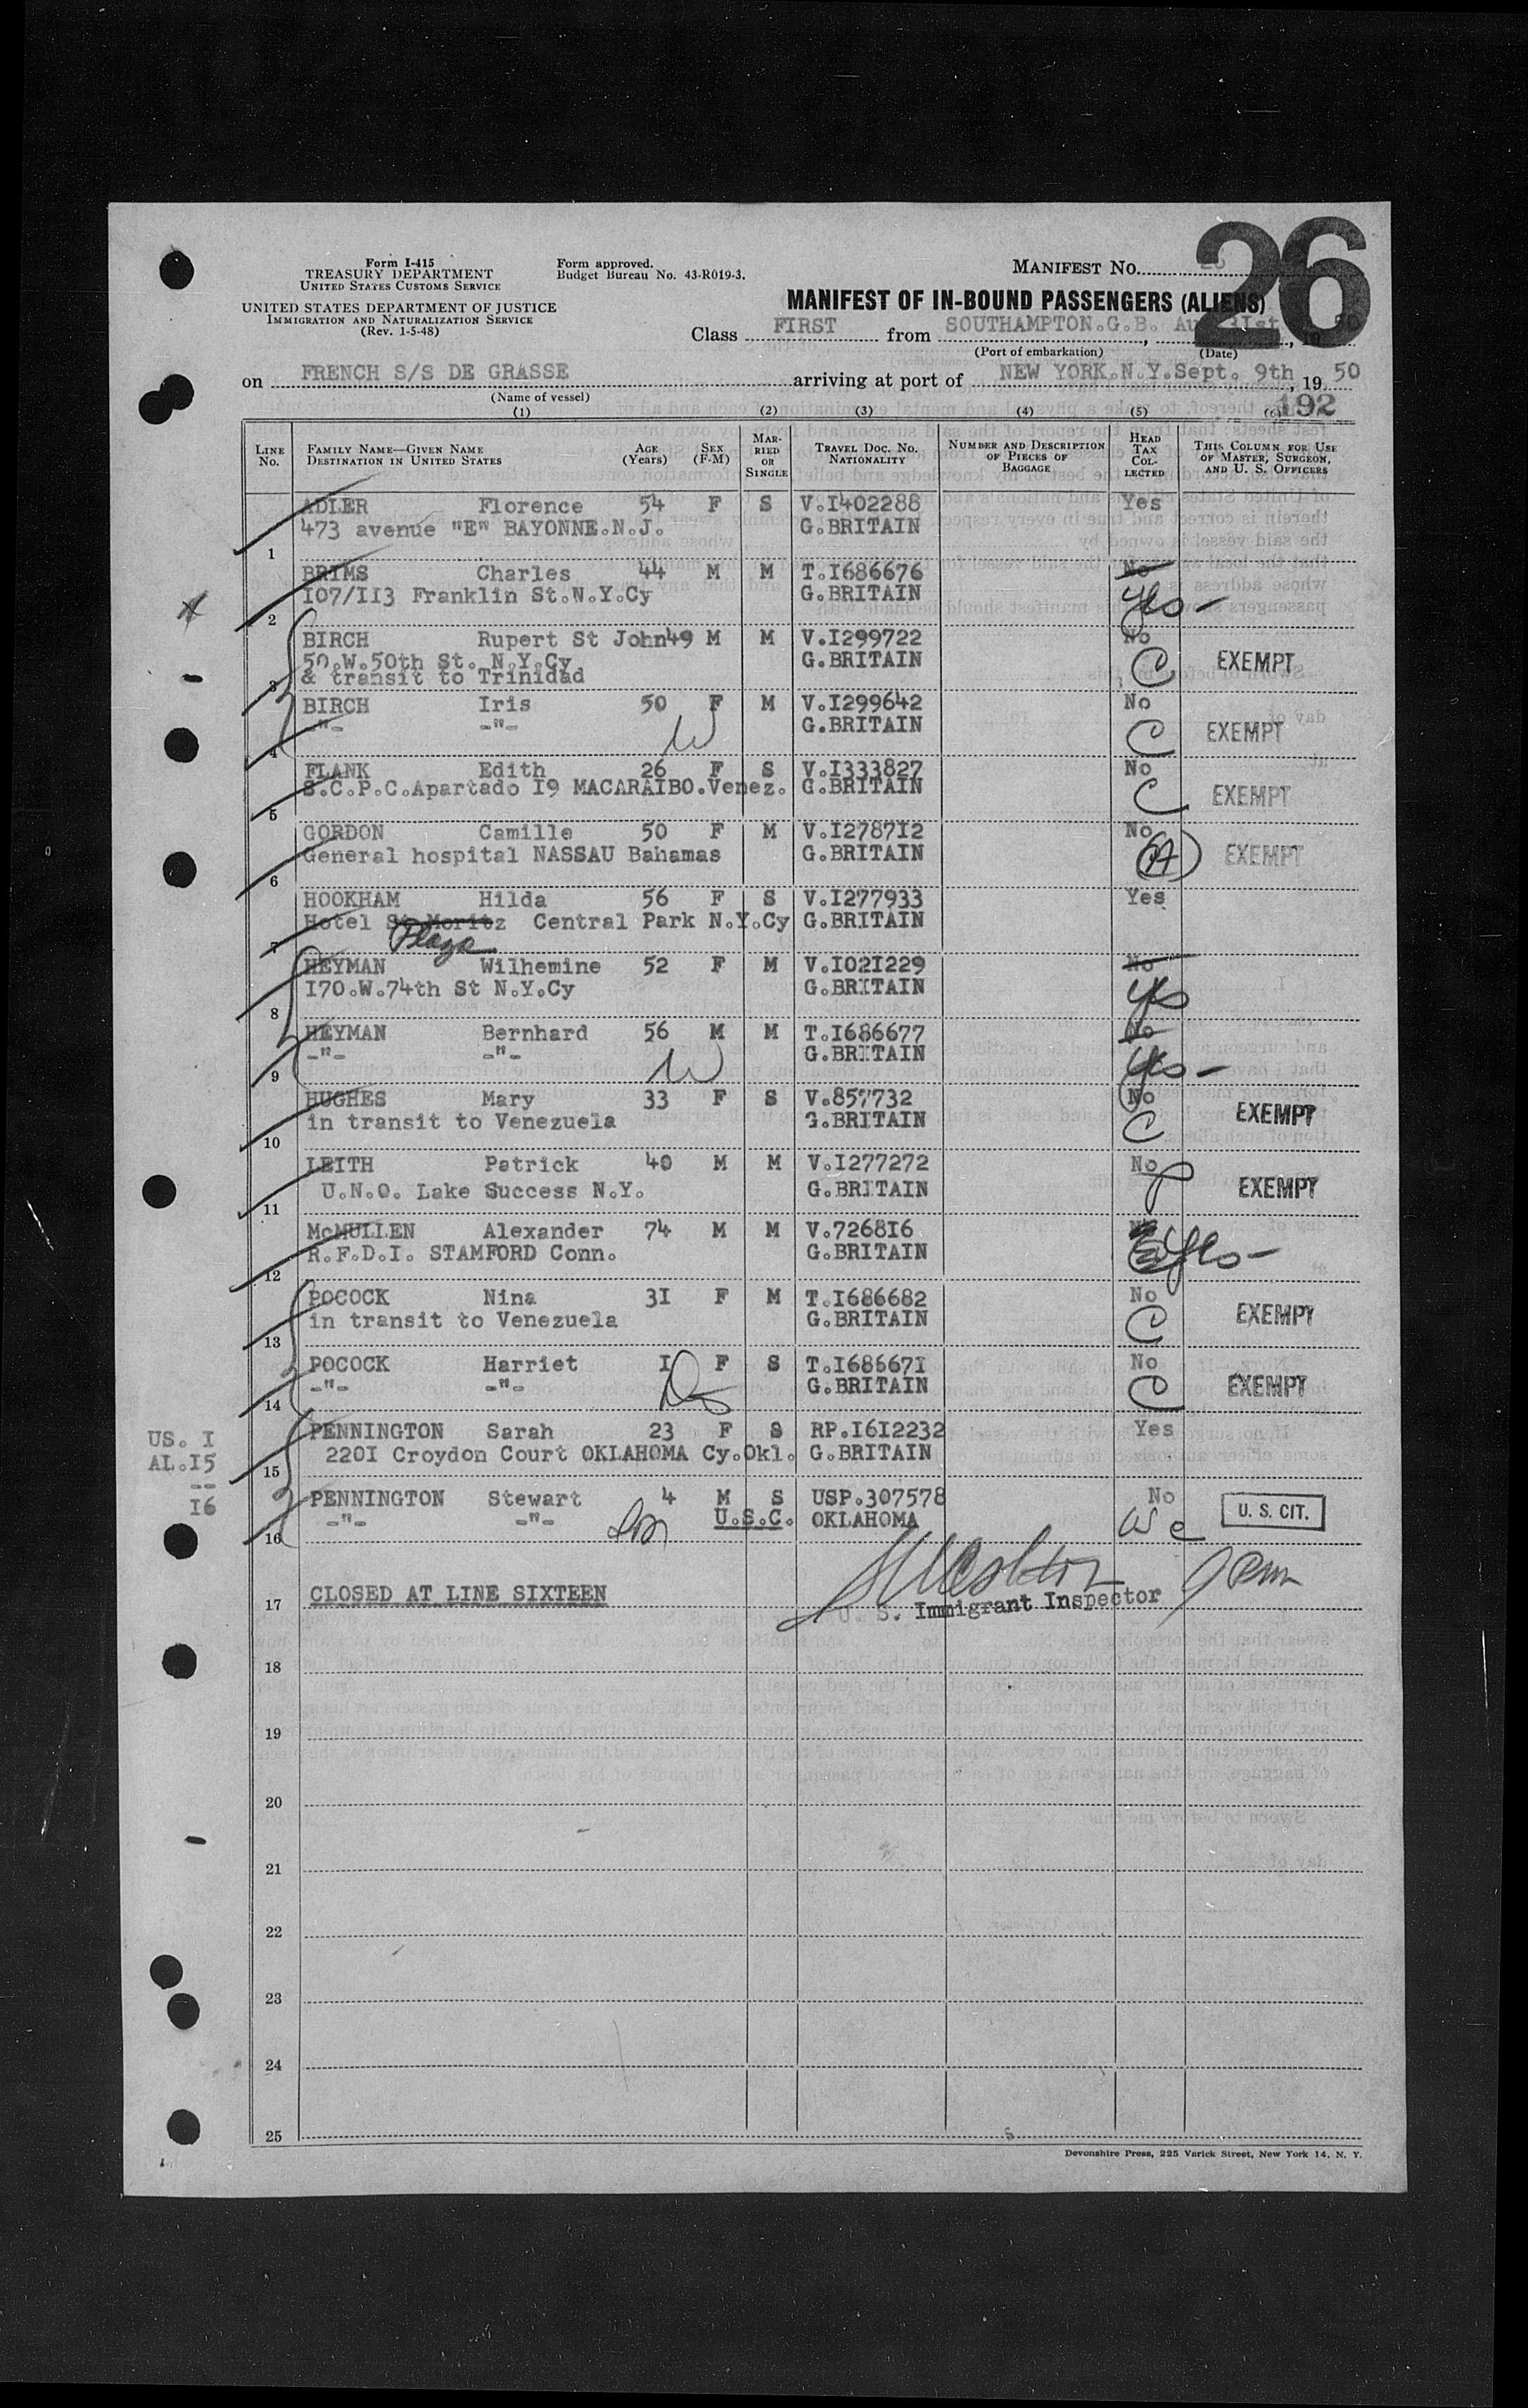 26
Form I-415
TREASURY DEPARTMENT
UNITED STATES CUSTOMS SERVICE
Form approved.
Budget Bureau No. 43-R019-3.
MANIFEST NO.
UNITED STATES DEPARTMENT OF JUSTICE
IMMIGRATION AND NATURALIZATION SERVICE
(Rev. 1-5-48)
MANIFEST OF IN-BOUND PASSENGERS (ALIENS)
Class FIRST from SOUTHAMPTON.G.B.
(Port of embarkation) (Date)
on FRENCH S/S DE GRASSE arriving at port of NEW YORK.N.Y.Sept. 9th, 19 50
(Name of vessel)
(1) (2) (3) (4) (5) (6) 192
LINE No. FAMILY NAME—GIVEN NAME DESTINATION IN UNITED STATES AGE (Years) SEX (F-M) MARRIED OR SINGLE TRAVEL DOC. NO. NATIONALITY NUMBER AND DESCRIPTION OF PIECES OF BAGGAGE HEAD TAX COLLECTED THIS COLUMN FOR USE OF MASTER, SURGEON, AND U. S. OFFICERS
ADLER Florence 54 F S V.I402288 Yes
473 avenue "E" BAYONNE.N.J. G.BRITAIN
1
BRIMS Charles 44 M M T.I686676 No
I07/II3 Franklin St.N.Y.Cy G.BRITAIN yes -
2
BIRCH Rupert St John 49 M M V.I299722 No
50.W.50th St. N.Y.Cy G.BRITAIN C EXEMPT
& transit to Trinidad
3
BIRCH Iris 50 F M V.I299642 No
-"- -"- W G.BRITAIN C EXEMPT
4
FLANK Edith 26 F S V.I333827 No
S.C.P.C.Apartado I9 MACARAIBO.Venez. G.BRITAIN C EXEMPT
5
GORDON Camille 50 F M V.I2787I2 No
General hospital NASSAU Bahamas G.BRITAIN A EXEMPT
6
HOOKHAM Hilda 56 F S V.I277933 Yes
Hotel St Moritz Central Park N.Y.Cy G.BRITAIN
Plaza
7
HEYMAN Wilhemine 52 F M V.I02I229 No
I70.W.74th St N.Y.Cy G.BRITAIN yes
8
HEYMAN Bernhard 56 M M T.I686677 No
-"- -"- W G.BRITAIN yes -
9
HUGHES Mary 33 F S V.857732 No
in transit to Venezuela G.BRITAIN C EXEMPT
10
LEITH Patrick 40 M M V.I277272 No
U.N.O. Lake Success N.Y. G.BRITAIN EXEMPT
11
McMULLEN Alexander 74 M M V.7268I6
R.F.D.I. STAMFORD Conn. G.BRITAIN yes -
12
POCOCK Nina 3I F M T.I686682 No
in transit to Venezuela G.BRITAIN C EXEMPT
13
POCOCK Harriet I F S T.I68667I No
-"- -"- G.BRITAIN C EXEMPT
14
US. I
AL.I5
--
I6
PENNINGTON Sarah 23 F S RP.I6I2232 Yes
220I Croydon Court OKLAHOMA Cy.Okl. G.BRITAIN
15
PENNINGTON Stewart 4 M S USP.307578 No
-"- -"- Son U.S.C. OKLAHOMA U. S. CIT.
16
17 CLOSED AT LINE SIXTEEN
U. S. Immigrant Inspector
18
19
20
21
22
23
24
25
Devonshire Press, 225 Varick Street, New York 14, N. Y.